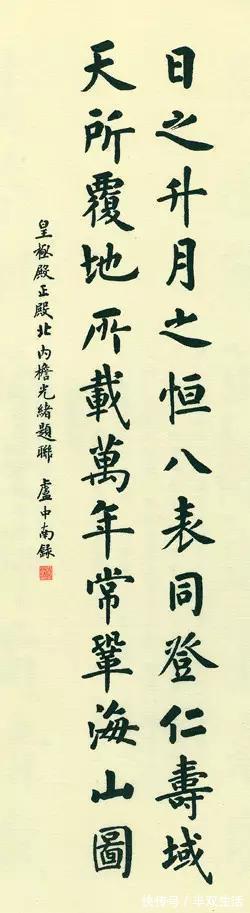 日之升月之恒八表同登仁壽域
天所覆地所載萬年常鞏海山圖
皇極殿正殿北內檐光緒題聯 盧中南錄
快传号/半双生活